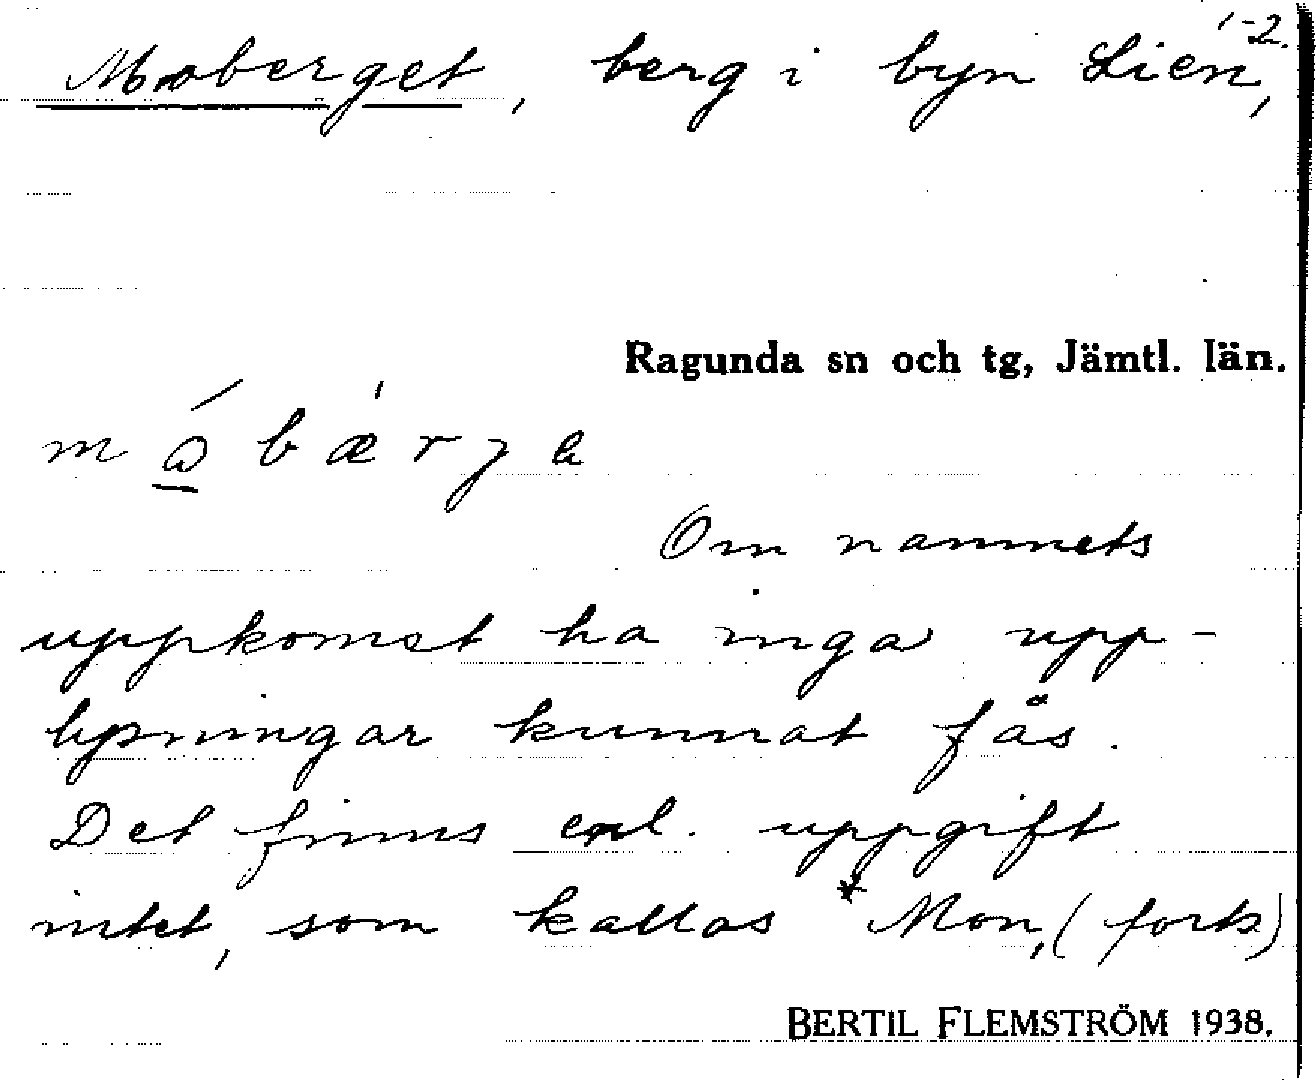 1-2.
Moberget, berg i byn Lien,
Ragunda sn och tg, Jämtl. län.
Om namnets
uppkomst ha inga upp-
lysningar kunnat fås.
Det finns enl. uppgift
intet, som kallas *Mon, (forts)
BERTIL FLEMSTRÖM 1938.